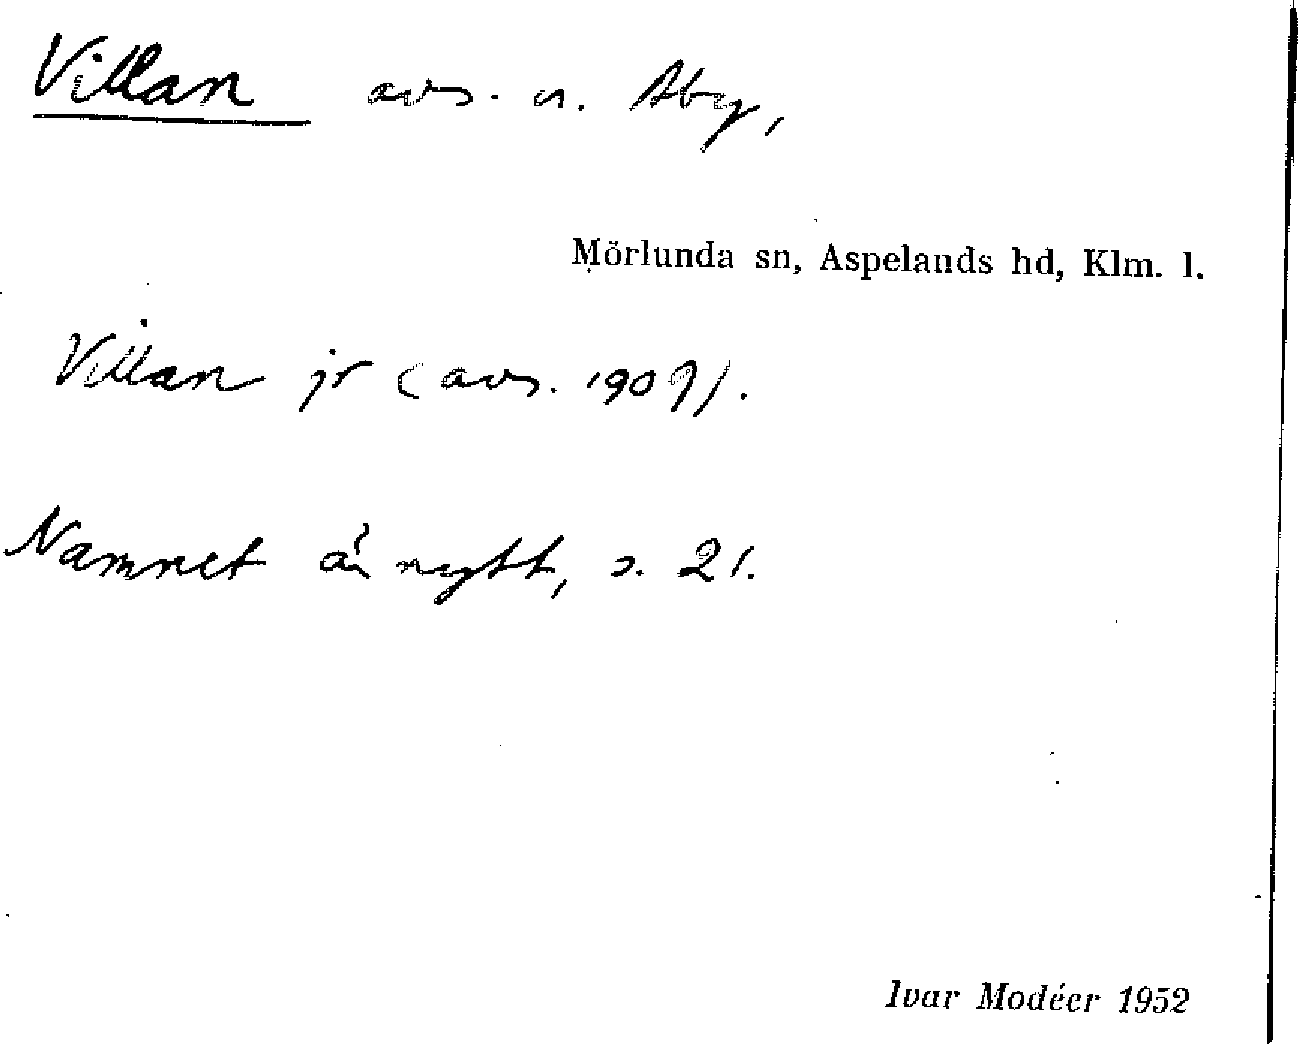 Villan avs. u. Åby,
Mörlunda sn, Aspelands hd, Klm. l.
Villan jr (avs. 1909).
Namnet är nytt, s. 21.
Ivar Modéer 1952